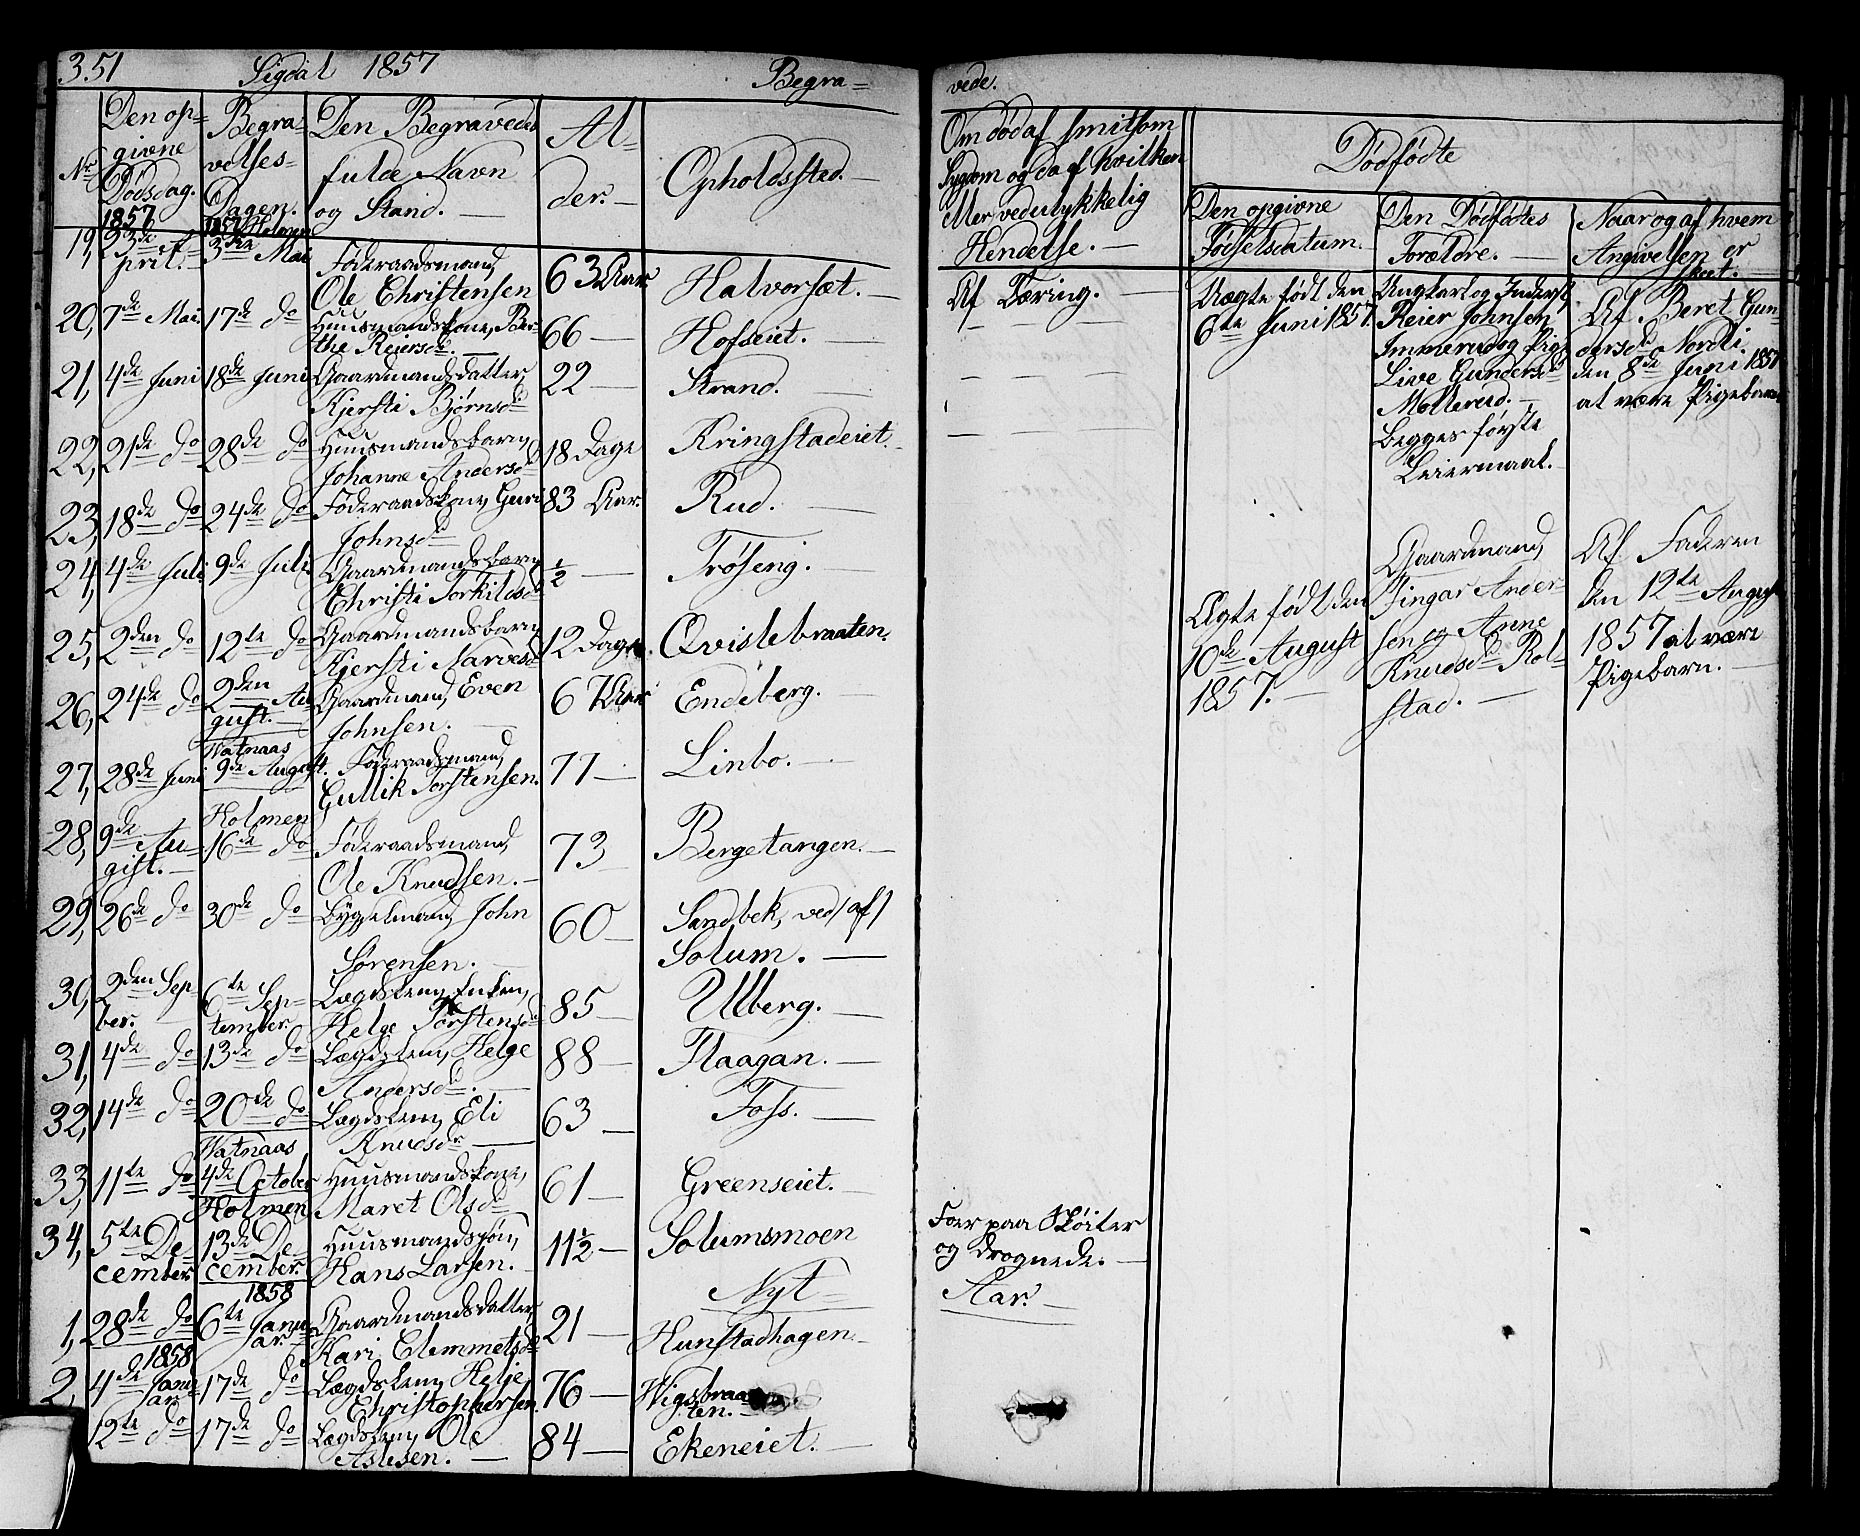 351 Sigdal 1857 Begra=
vede.
Nr Den op=givne Dødsdag. 1857
Begra=velses=Dagen. 1857 Holmen
Den Begravedes fulde Navn og Stand.
Al=der.
Opholdssted.
Om død af smitsom Sygdom og da af hvilken eller ved ulykkelig Hendelse.
Dødfødte
Den opgivne Fødselsdatum.
Den Dødfødtes Forældre.
Naar og af hvem Angivelsen er skeet.
19, 23de April. 3die Mai Føderaadsmand Ole Christensen 63 Aar Halvorsæt. Af Tæring.
20, 7de Mai. 17de do Huusmandskone, Berthe Reiersd. 66 Hofseiet.
21, 4de Juni 18de Juni Gaardmandsdatter, Kjersti Bjørnsd 22 Strand.
22, 21de do 28de do Huusmandsbarn, Johanne Andersd 18 Dage Kringstadeiet.
23, 18de do 24de do Føderaadskone, Guri Johnsd 83 Aar. Rud.
24, 4de Juli 9de Juli Gaardmandsbarn Christi Torkildsd ½ Trøseng.
25, 2den do 12te do Gaardmandsbarn Kjersti Narvesd 12 Dage. Qvislebraaten.
26, 24de do 2den August. Gaardmand, Even Johnsen. 67 Aar Endeberg.
Watnaas
27, 28de Juni 9de August. Føderaadsmand, Gullik Torstensen. 77 Linbo.
Holmen
28, 9de Augist. 16de do Føderaadsmand, Ole Knudsen. 73 Bergetangen.
29, 26de do 30de do Bygselmand, John Sørensen. 60 Sandbek, ved /af/ Solum.
30, 2den Sepber. 6te September. Lægdslem, Enken, Helge Torstensd 85 Ulberg.
31, 4de do 13de do Lægdslem, Helge Andersd. 88 Flaagan.
32, 14de do 20de do Lægdslem, Eli Knudsdr 63 Foss.
Watnaas
33, 11te do 4de October Huusmandskone, Maret Olsd 61 Greenseiet.
Holmen
34, 5te December 13de December. Huusmandssøn, Hans Larsen. 11½ Solumsmoen Foer paa Skøiter og drognede.
Nyt Aar.
1858
1, 28de do 6te Januar Gaardmandsdatter, Kari Clemmetsd 21 Hunstadhagen
1858
2, 4de Januar 17de do Lægdslem, Helje Christophersen. 76 Wigsbraaten.
12te do 17de do Lægdslem, Ole Aslesen. 84 Ekeneiet.
Uægte født den 6te Juni 1857.
Ungkarl og Inderst, Reier Johnsen Immerud og Pige Live Gundersd Møllerud. Begges første Leiermaal.
Af Beret Gundersd Nordli den 8de Juni 1857 at være Pigebarn
Ægte født den 10de August 1857.
Gaardmand, Fingar Andersen og Anne Knudsd Rolstad.
Af Faderen den 12te August 1857 at være Pigebarn.